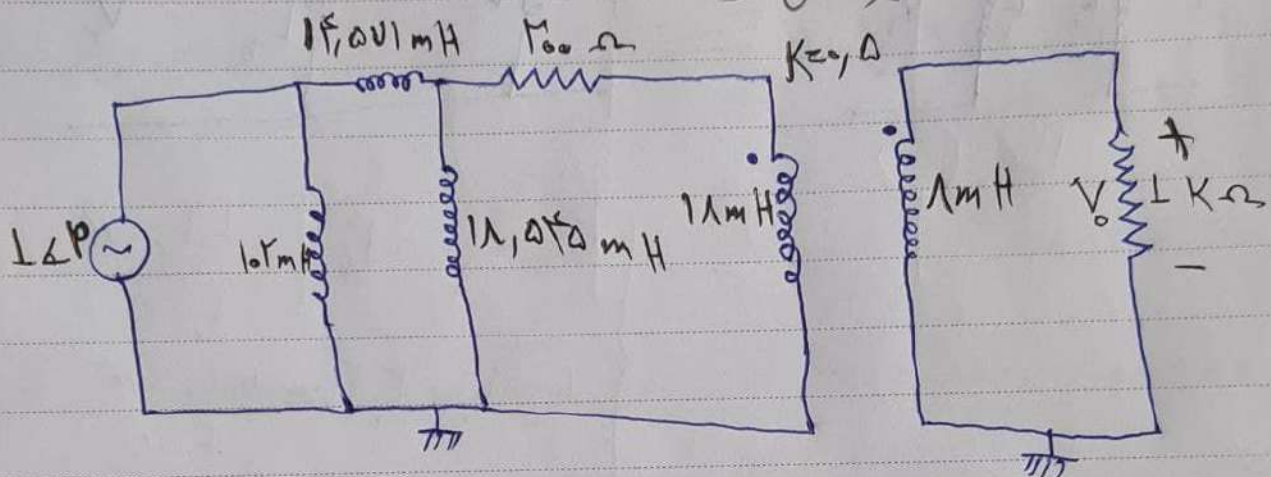 ۱۴,۵۷۱ mH ۲۰۰ Ω
K=۰,۵
۱۰۲ mH
۱۸,۵۴۵ mH
۱۸ mH
۸ mH
+
V₀ ۱ KΩ
−